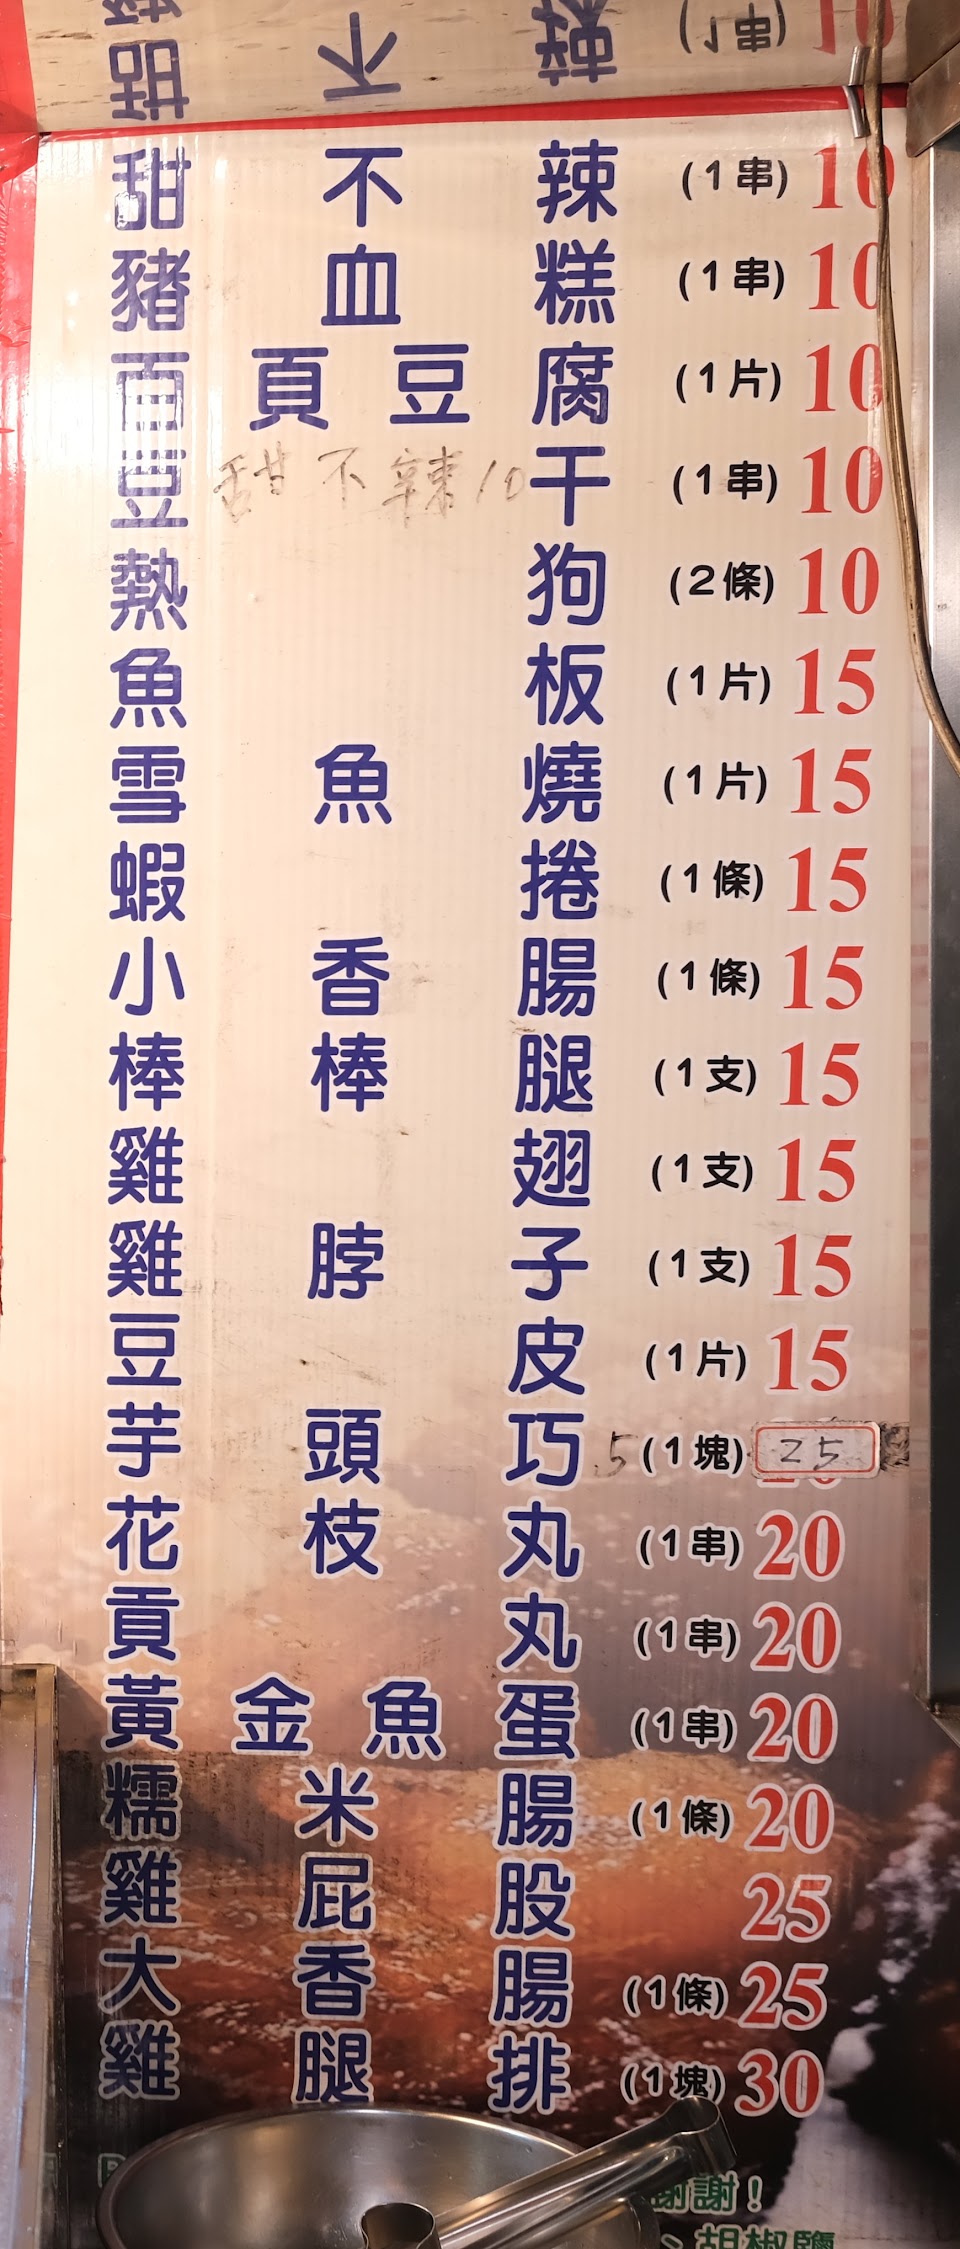 甜不辣 (1串) 10
甜不辣 (1串) 10
豬血糕 (1串) 10
百頁豆腐 (1片) 10
豆干 (1串) 10
甜不辣10
熱狗 (2條) 10
魚板 (1片) 15
雪魚燒 (1片) 15
蝦捲 (1條) 15
小香腸 (1條) 15
棒棒腿 (1支) 15
雞翅 (1支) 15
雞脖子 (1支) 15
豆皮 (1片) 15
芋頭巧 5 (1塊) 25
花枝丸 (1串) 20
貢丸 (1串) 20
黃金魚蛋 (1串) 20
糯米腸 (1條) 20
雞屁股 25
大香腸 (1條) 25
雞腿排 (1塊) 30
謝謝！
、胡椒鹽